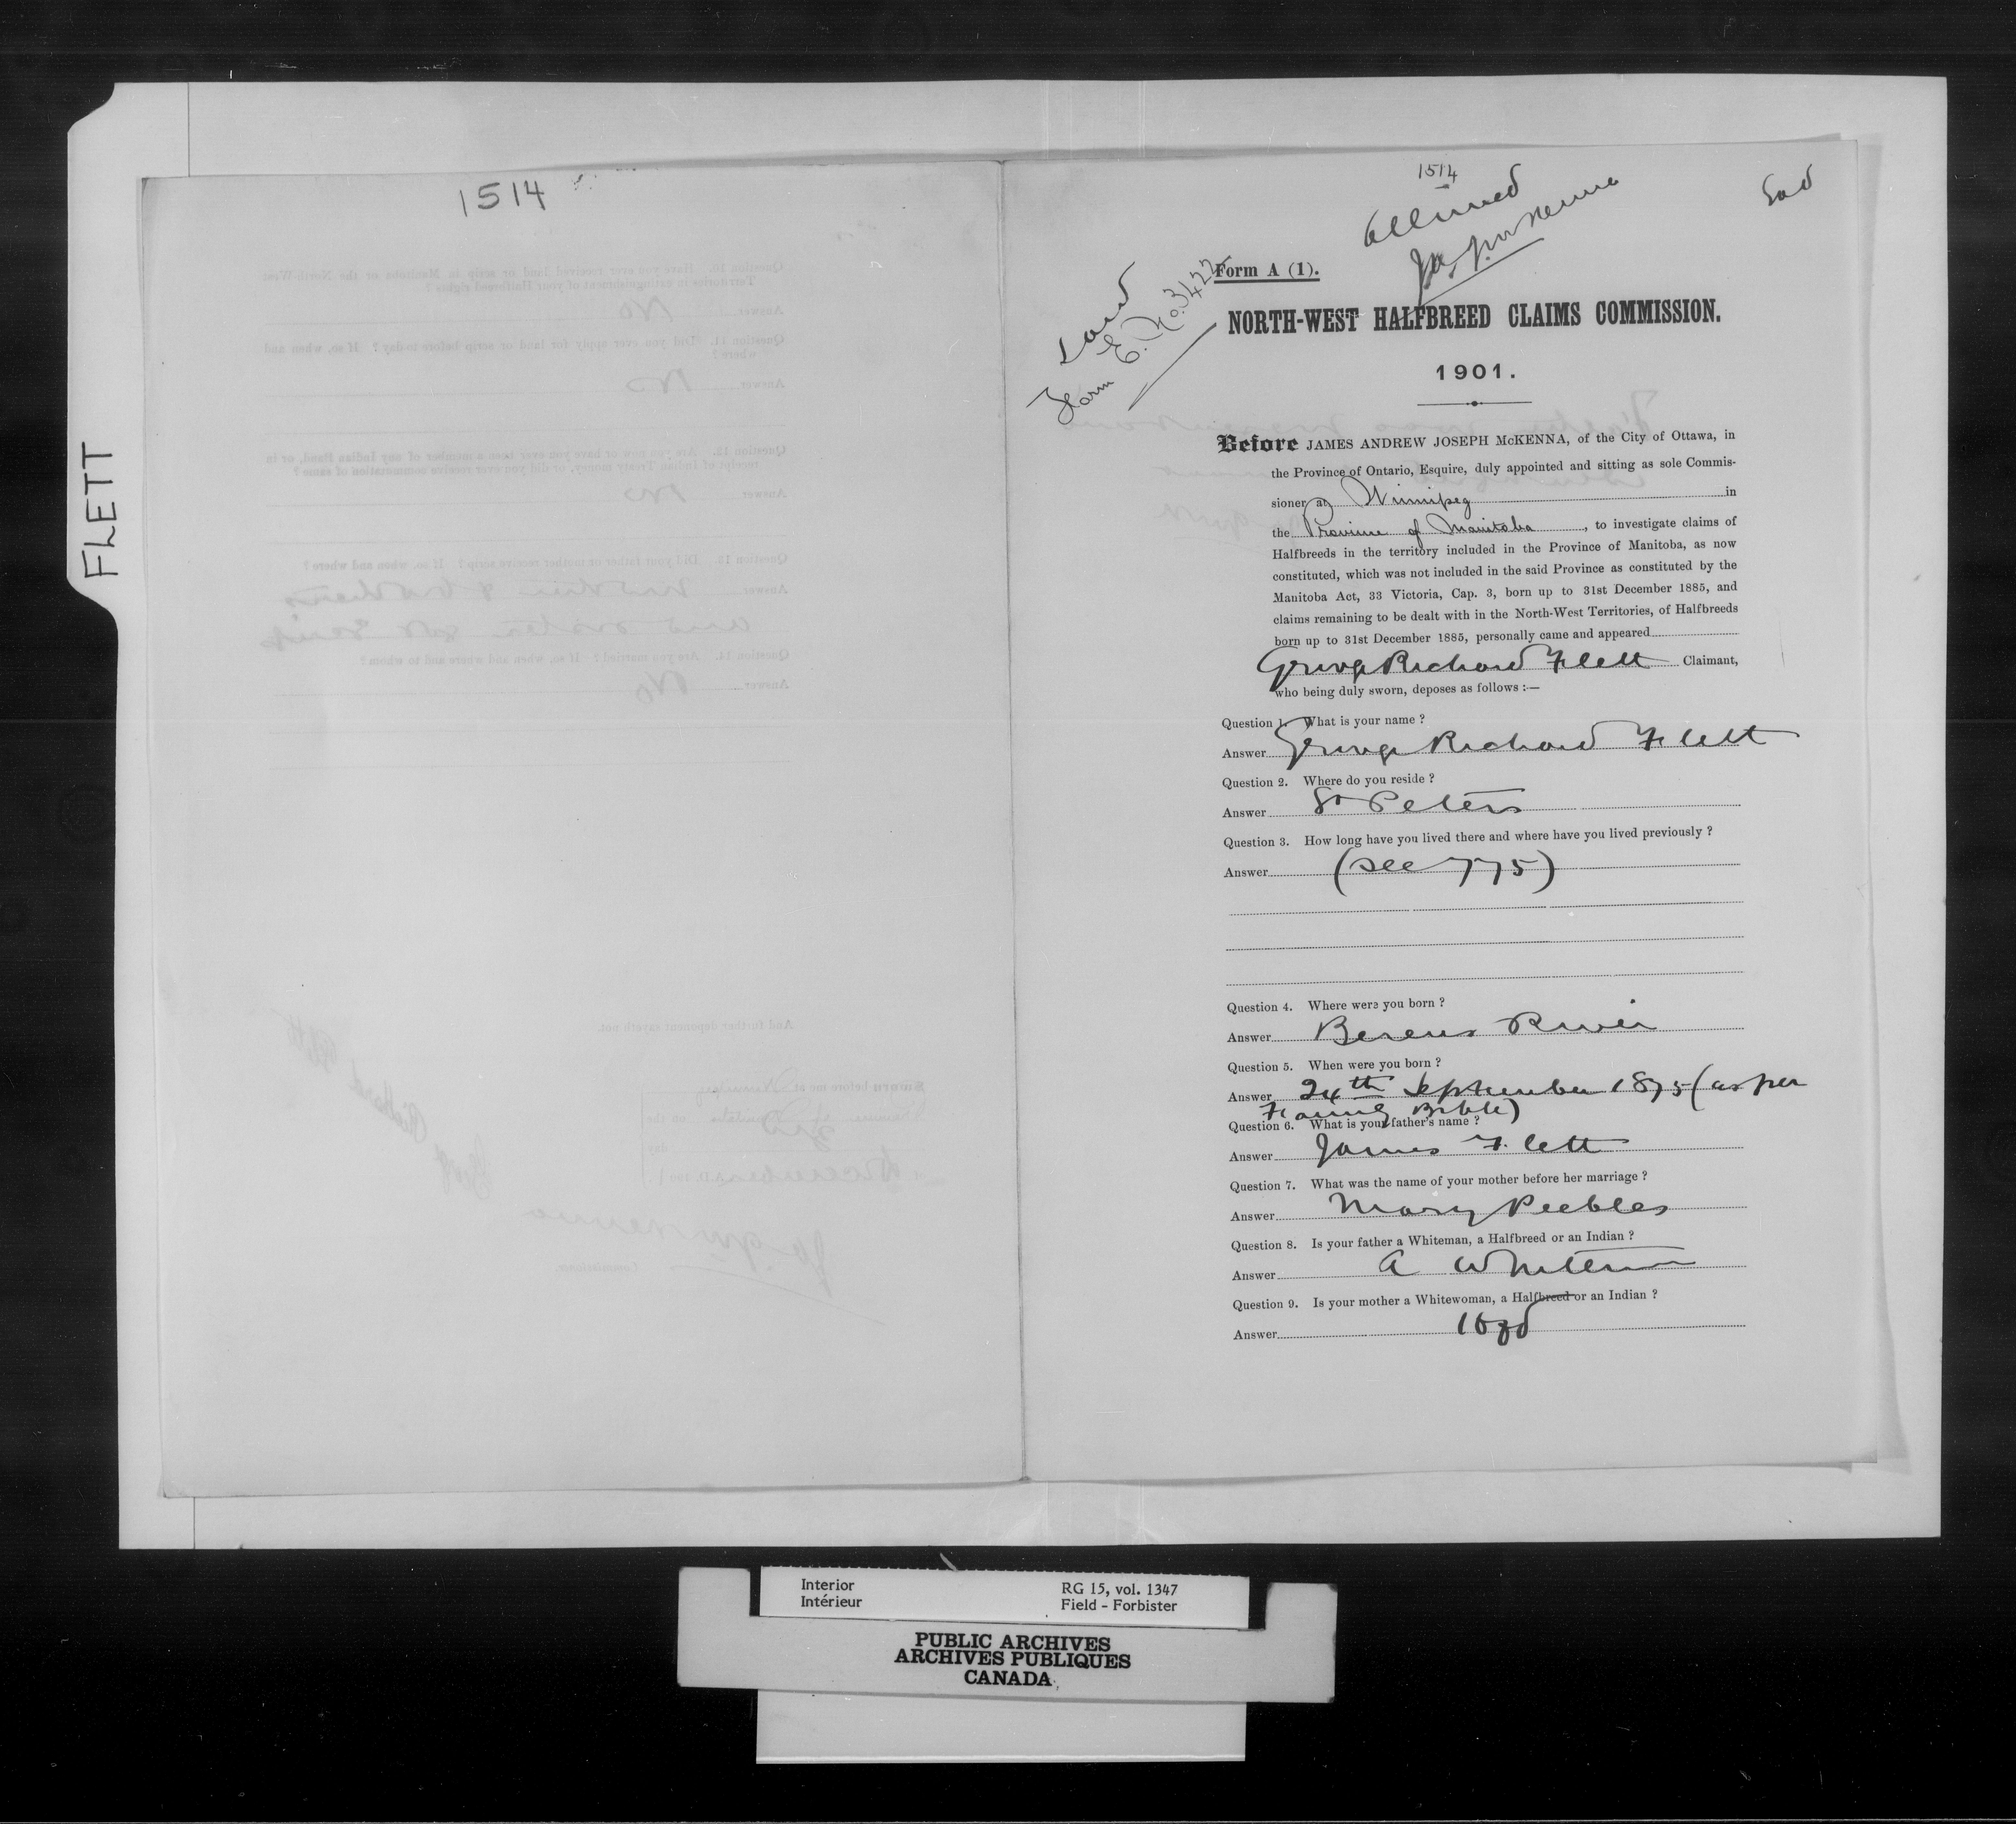 FLETT
1514
1514
Allowed
J.A.J. McKenna
Land
Form E. No. 3422
Form A (1).
NORTH-WEST HALFBREED CLAIMS COMMISSION.
1901.
Before JAMES ANDREW JOSEPH McKENNA, of the City of Ottawa, in
the Province of Ontario, Esquire, duly appointed and sitting as sole Commis-
sioner at Winnipeg in
the Province of Manitoba, to investigate claims of
Halfbreeds in the territory included in the Province of Manitoba, as now
constituted, which was not included in the said Province as constituted by the
Manitoba Act, 33 Victoria, Cap. 3, born up to 31st December 1885, and
claims remaining to be dealt with in the North-West Territories, of Halfbreeds
born up to 31st December 1885, personally came and appeared
George Richard Flett Claimant,
who being duly sworn, deposes as follows :—
Question 1. What is your name ?
Answer George Richard Flett
Question 2. Where do you reside ?
Answer St Peters
Question 3. How long have you lived there and where have you lived previously ?
Answer (See 775)
Question 4. Where were you born ?
Answer Berens River
Question 5. When were you born ?
Answer 24th September 1875 (as per
Family Bible)
Question 6. What is your father's name ?
Answer James Flett
Question 7. What was the name of your mother before her marriage ?
Answer Mary Peebles
Question 8. Is your father a Whiteman, a Halfbreed or an Indian ?
Answer A Whiteman
Question 9. Is your mother a Whitewoman, a Halfbreed or an Indian ?
Answer
Interior
Intérieur
RG 15, vol. 1347
Field - Forbister
PUBLIC ARCHIVES
ARCHIVES PUBLIQUES
CANADA